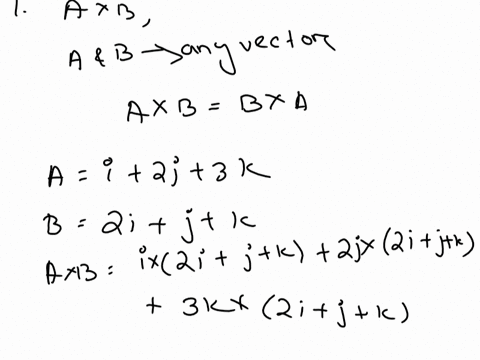 1. A × B,
A & B → any vector
A × B = B × A
A = i + 2j + 3k
B = 2i + j + k
A×B = i×(2i + j + k) + 2j×(2i + j + k)
+ 3k × (2i + j + k)